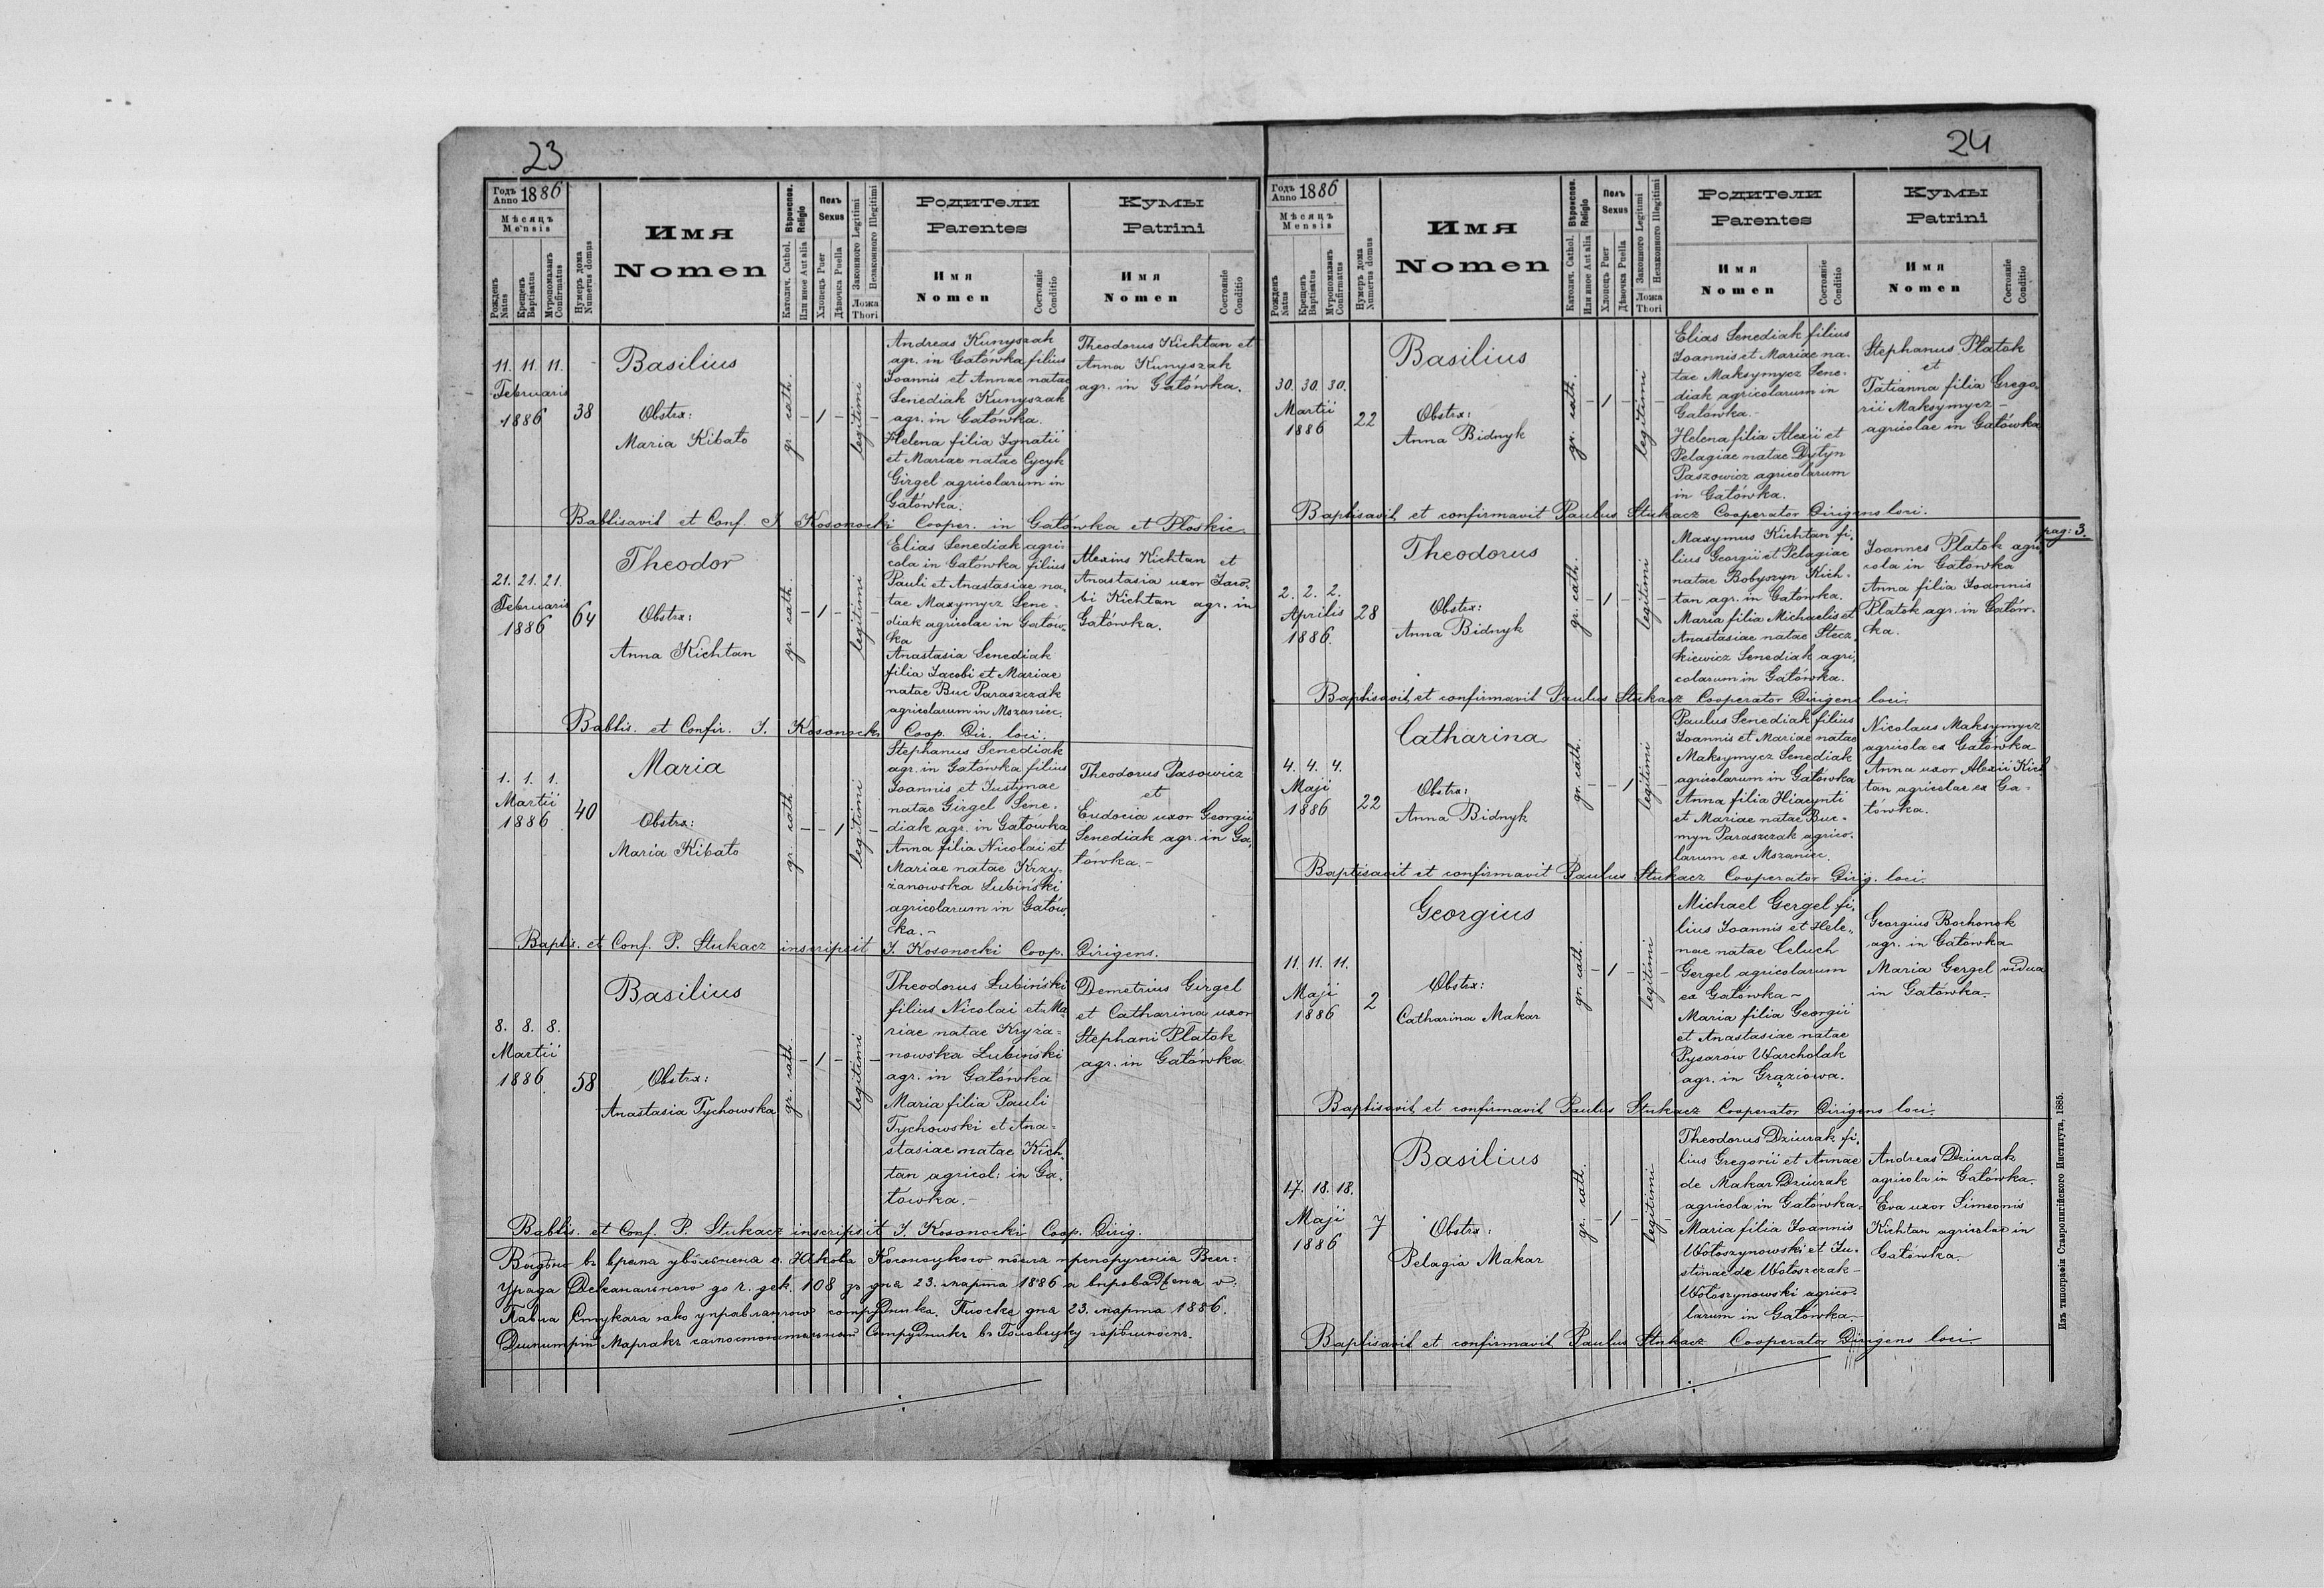 23
Годъ Anno 1886
Мѣсяць Mensis
Рожденъ Natus
Крещенъ Baptisatus
Мvропомазанъ Confirmatus
Нумеръ дома Numerus domus
Имя
Nomen
Вѣроиспов. Religio
Католич. Cathol.
Или иное Aut alia
Полъ Sexus
Хлопецъ Puer
Дѣвочка Puella
Законного Legitimi
Незаконного Illegitimi
Ложа Thori
Родители
Parentes
Имя
Nomen
Состояніе
Conditio
Кумы
Patrini
Имя
Nomen
Состояніе
Conditio
11. 11. 11.
Februaris
1886
38
Basilius
Obstrx:
Maria Kibało
gr. cath.
- 1 - -
legitimi
Andreas Kunyszak
agr. in Gałówka filius
Joannis et Annae natae
Senediak Kunyszak
agr. in Gałówka.
Helena filia Ignatii
et Mariae natae Cycyk
Girgel agricolarum in
Gałówka.
Theodorus Kichtan et
Anna Kunyszak
agr. in Gałówka.
Bablisavit et Conf. J Kosonocki Cooper. in Gałówka et Płoskie
21. 21. 21.
Februaris
1886
64
Theodor
Obstrx:
Anna Kichtan
gr. cath.
- 1 - -
legitimi
Elias Senediak agri
cola in Gałówka filius
Pauli et Anastasiae na,
tae Maxymycz Sene-
diak agricolae in Gałów,
ka
Anastasia Senediak
filia Jacobi et Mariae
natae Buc Paraszczak
agricolarum in Mszaniec.
Alexius Kichtan et
Anastasia uxor Jaco,
bi Kichtan agr. in
Gałówka.
Bablis. et Confir. J. Kosonocki Coop. Dir. loci.
1. 1. 1.
Martii
1886
40
Maria
Obstrx:
Maria Kibało
gr. cath
- - 1 -
legitimi
Stephanus Senediak
agr. in Gałówka filius
Joannis et Justynae
natae Girgel Sene-
diak agr. in Gałówka
Anna filia Nicolai et
Mariae natae Krzy-
żanowska Łubiński
agricolarum in Gałów,
ka.-
Theodorus Pasowicz
et
Eudocia uxor Georgii
Senediak agr. in Ga,
łówka.-
Baptis. et Conf. P. Stukacz inscripsit J. Kosonocki Coop. Dirigens.
8. 8. 8.
Martii
1886
58
Basilius
Obstrx:
Anastasia Tychowska
gr. cath.
- 1 - -
legitimi
Theodorus Łubiński
filius Nicolai et Ma
riae natae Kryża=
nowska Łubiński
agr. in Gałówka
Maria filia Pauli
Tychowski et Ana=
stasiae natae Kich,
tan agricol: in Ga,
łówka.-
Demetrius Girgel
et Catharina uxor
Stephani Płatok
agr. in Gałówka
Bablis. et Conf. P. Stukacz inscripsit J. Kosonocki Coop. Dirig.
108
23. марта 1886
Павла
23. марта 1886.
24
Годъ Anno 1886
Мѣсяць Mensis
Рожденъ Natus
Крещенъ Baptisatus
Мvропомазанъ Confirmatus
Нумеръ дома Numerus domus
Имя
Nomen
Вѣроиспов. Religio
Католич. Cathol.
Или иное Aut alia
Полъ Sexus
Хлопецъ Puer
Дѣвочка Puella
Законного Legitimi
Незаконного Illegitimi
Ложа Thori
Родители
Parentes
Имя
Nomen
Состояніе
Conditio
Кумы
Patrini
Имя
Nomen
Состояніе
Conditio
30. 30. 30.
Martii
1886
22
Basilius
Obstrx:
Anna Bidnyk
gr. cath.
- 1 - -
legitimi
Elias Senediak filius
Joannis et Mariae na-
tae Maksymycz Sene-
diak agricolarum in
Gałówka.-
Helena filia Alexii et
Pelagiae natae Dytyn
Paszowicz agricolarum
in Gałówka.
Stephanus Płatok
et
Tatianna filia Grego,
rii Maksymycz-
agricolae in Gałówka
Baptisavit et confirmavit Paulus Stukacz Cooperator Dirigens loci.
pag: 3.
2. 2. 2.
Aprilis
1886.
28
Theodorus
Obstrx:
Anna Bidnyk
gr. cath.
- 1 - -
legitimi
Maxymus Kichtan fi,
lius Georgii et Pelagiae
natae Bobyszyn Kich-
tan agr. in Gałówka.
Maria filia Michaelis et
Anastasiae natae Stecz,
kiewicz Senediak agri,
colarum in Gałówka.
Joannes Płatok agri
cola in Gałówka
Anna filia Joannis
Płatok agr. in Gałów-
ka.
Baptisavit et confirmavit Paulus Stukacz Cooperator Dirigens loci.
4. 4. 4.
Maji
1886
22
Catharina
Obstrx:
Anna Bidnyk
gr. cath.
- - 1 -
legitimi
Paulus Senediak filius
Joannis et Mariae natae
Maksymycz Senediak
agricolarum in Gałówka
Anna filia Hiacynti
et Mariae natae Buc-
myn Paraszczak agrico-
larum ex Mszaniec.
Nicolaus Maksymycz
agricola ex Gałówka
Anna uxor Alexii Kich
tan agricolae ex Ga-
łówka.
Baptisavit et confirmavit Paulus Stukacz Cooperator Dirig. loci.
11. 11. 11.
Maji
1886
2
Georgius
Obstrx:
Catharina Makar
gr. cath.
- 1 - -
legitimi
Michael Gergel fi,
lius Joannis et Hele,
nae natae Celuch
Gergel agricolarum
ex Gałówka-
Maria filia Georgii
et Anastasiae natae
Pysarów Warcholak
agr. in Grąziowa.
Georgius Bochonok
agr. in Gałówka
Maria Gergel vidua
in Gałówka.-
Baptisavit et confirmavit Paulus Stukacz Cooperator Dirigens loci.
17. 18. 18.
Maji
1886
7
Basilius
Obstrx:
Pelagia Makar
gr. cath.
- 1 - -
legitimi
Theodorus Dziurak fi,
lius Gregorii et Annae
de Makar Dziurak
agricola in Gałówka.
Maria filia Joannis
Wołoszynowski et Ju-
stinae de Wołoszczak-
Wołoszynowski agrico-
larum in Gałówka.-
Andreas Dziurak
agricola in Gałówka.
Eva uxor Simeonis
Kichtan agricolae in
Gałówka.-
Baptisavit et confirmavit Paulus Stukacz Cooperator Dirigens loci.
Изъ типографіи Ставропигійского Института, 1885.